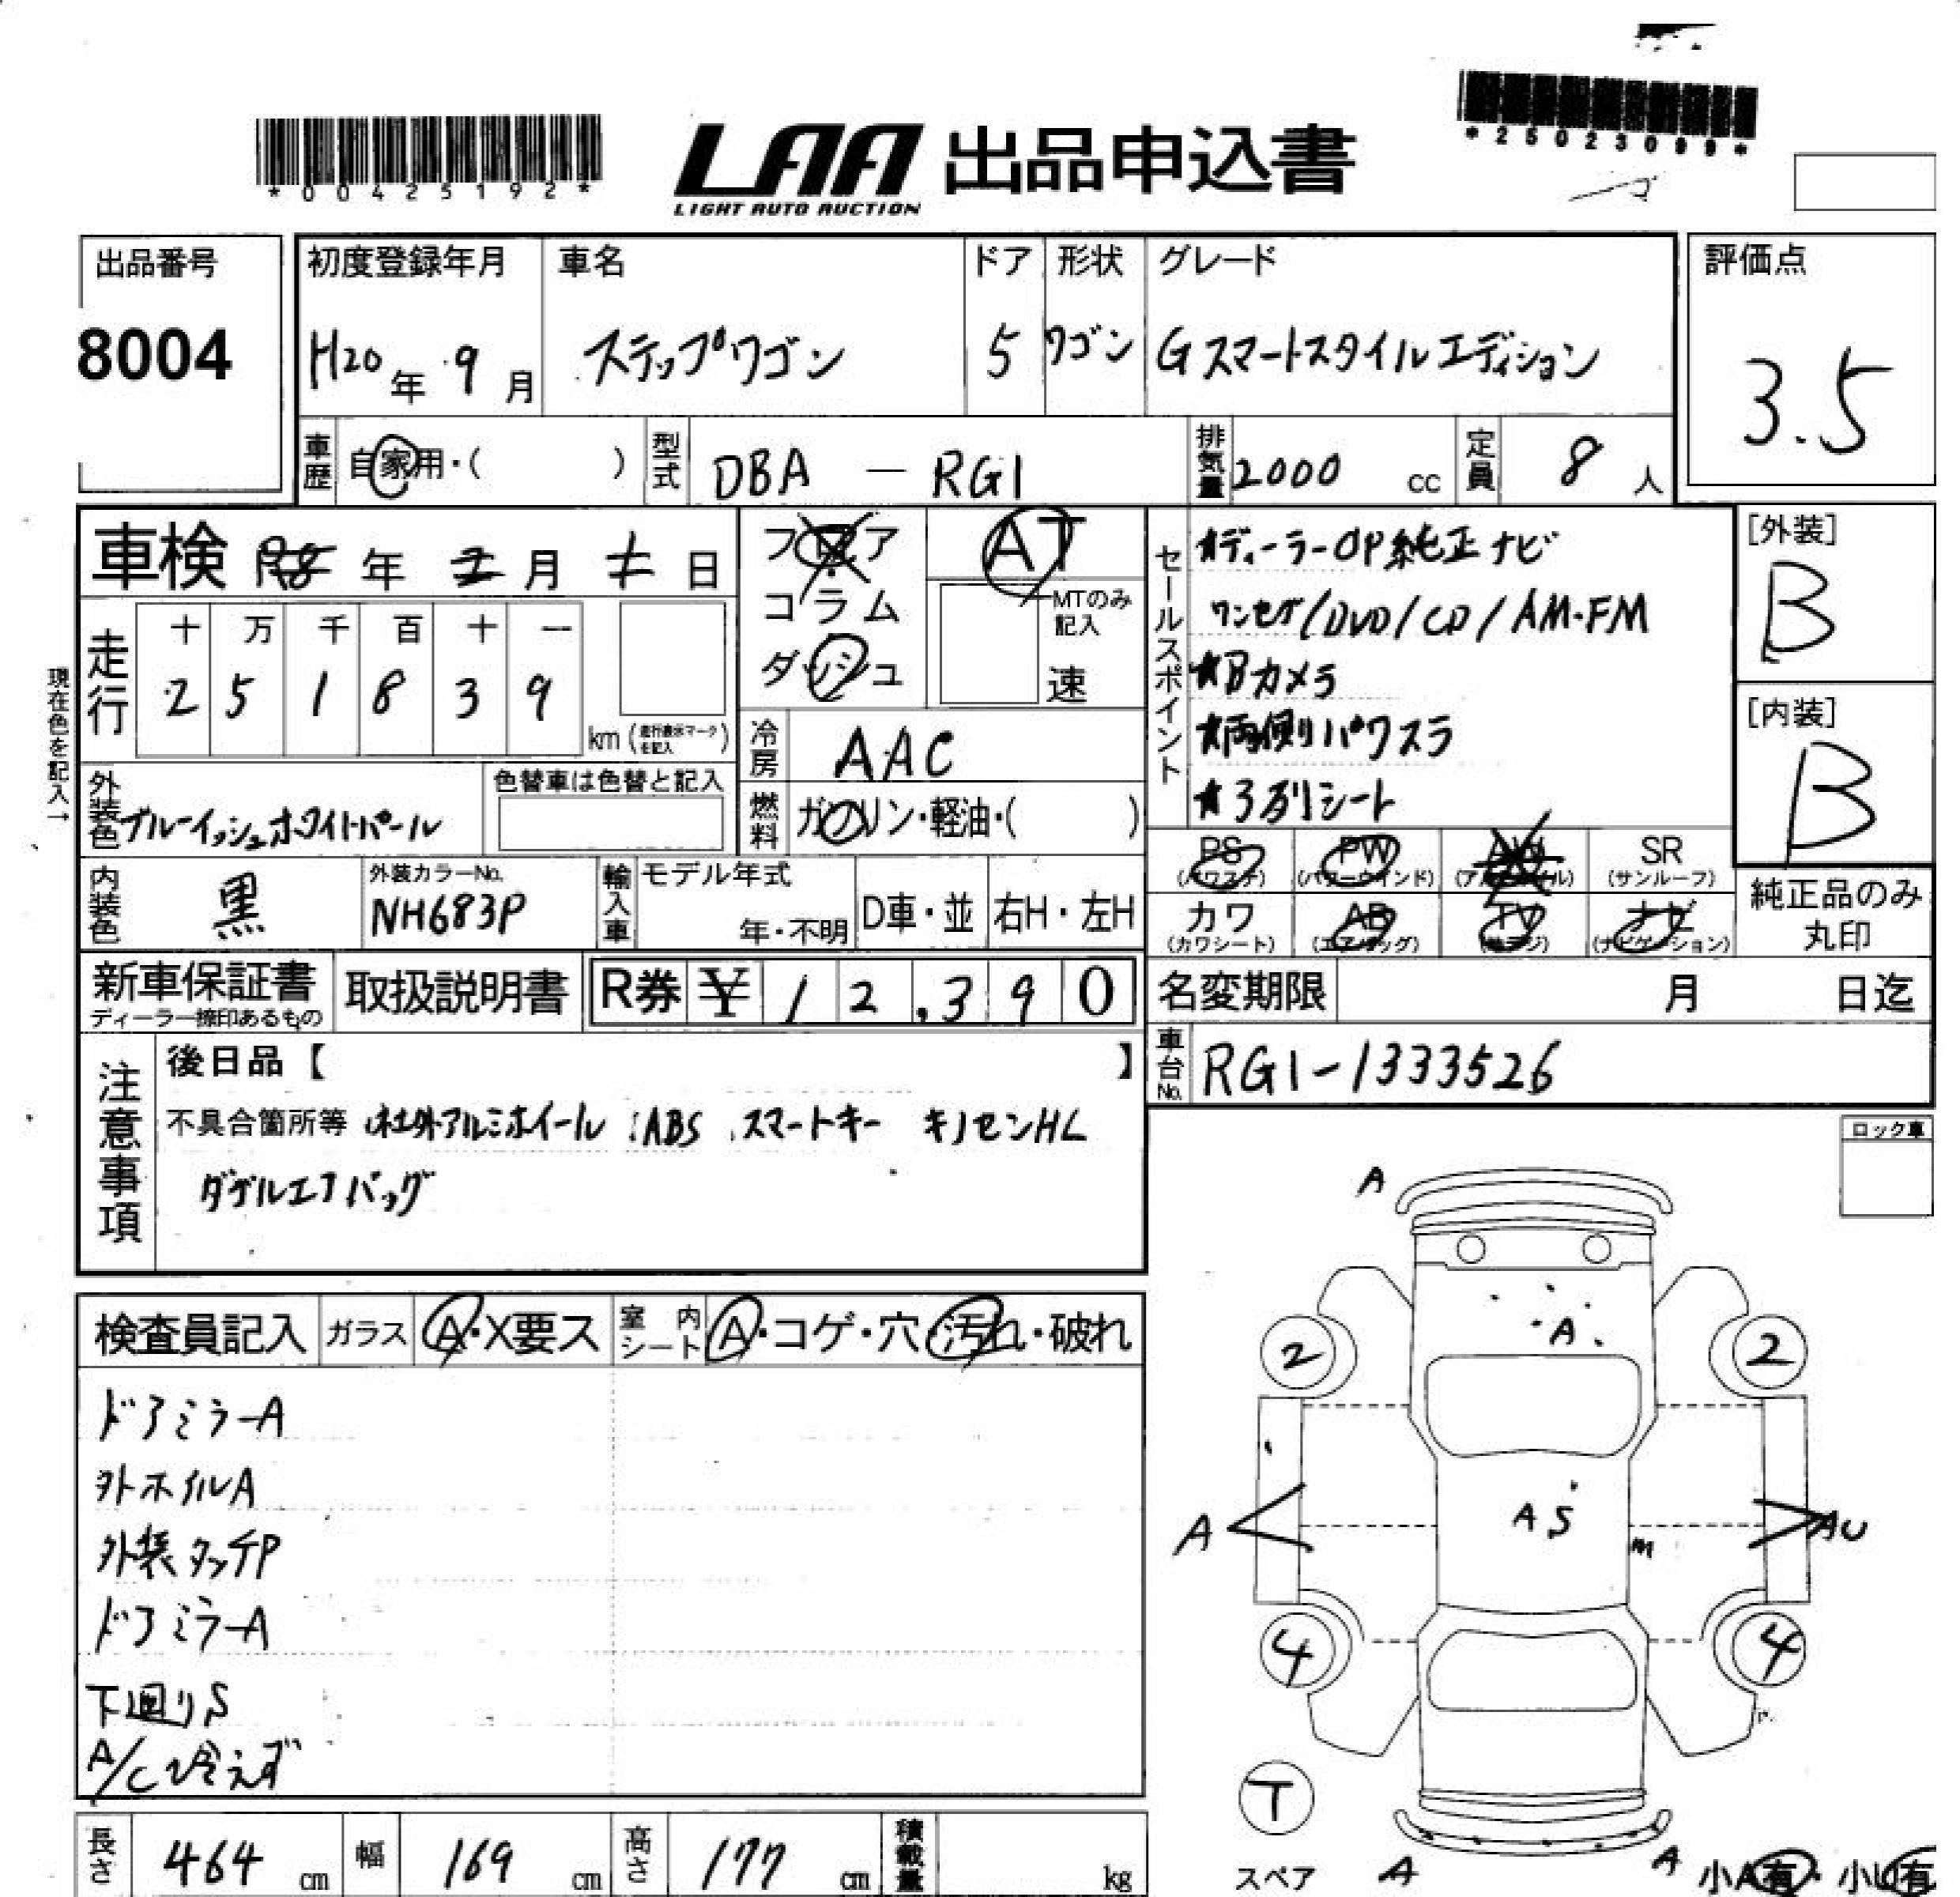 *00425192*
LAA 出品申込書
LIGHT AUTO AUCTION
*25023099*
出品番号
8004
初度登録年月 車名 ドア 形状 グレード
H20年 9月 ステップワゴン 5 ワゴン Gスマートスタイルエディション
評価点
3.5
車歴 自家用・( ) 型式 DBA - RG1 排気量 2000 cc 定員 8 人
車検 年 2月 1日
フロア
コラム
ダッシュ
AT
MTのみ記入
速
走行
十 万 千 百 十 一
2 5 1 8 3 9
km (走行表示マークを記入)
現在色を記入→
冷房 AAC
燃料 ガソリン・軽油・( )
外装色 ブルーイッシュホワイトパール
色替車は色替と記入
内装色 黒
外装カラーNo.
NH683P
輸入車 モデル年式
年・不明 D車・並 右H・左H
セールスポイント
★ディーラーOP純正ナビ
ワンセグ/DVD/CD/AM・FM
★Bカメラ
★両側パワスラ
★3列シート
[外装]
B
[内装]
B
PS PW AW SR
(パワステ) (パワーウインド) (アルミホイル) (サンルーフ)
カワ AB TV ナビ
(カワシート) (エアバッグ) (地デジ) (ナビゲーション)
純正品のみ
丸印
新車保証書
ディーラー捺印あるもの
取扱説明書
R券 ¥ 12,390
名変期限 月 日迄
車台No. RG1-1333526
注意事項
後日品【 】
不具合箇所等 社外アルミホイール ABS スマートキー キノセンHL
ダブルエアバッグ
ロック車
検査員記入 ガラス A・X要ス 室内シート A・コゲ・穴・汚れ・破れ
ドアミラーA
外ホイルA
外装タッチP
ドアミラーA
下廻りS
A/C冷えず
A
A
2 2
A
A S
AU
4 4
T
スペア
A
A
小A有・小U有
長さ 464 cm 幅 169 cm 高さ 177 cm 積載量 kg